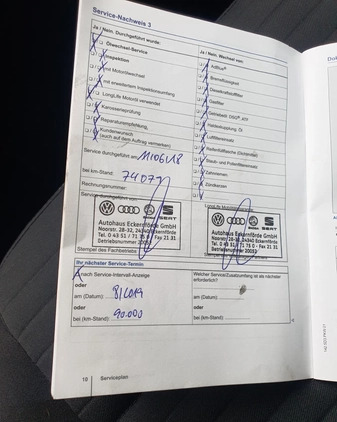 Service-Nachweis 3
Ja / Nein. Durchgeführt wurde:
Ölwechsel-Service
Inspektion
mit Motorölwechsel
mit erweitertem Inspektionsumfang
LongLife Motoröl verwendet
Karosserieprüfung
Reparaturempfehlung
Kundenwunsch
(auch auf dem Auftrag vermerken)
Service durchgeführt am
bei km-Stand:
Rechnungsnummer:
Service durchgeführt von:
SEAT
Autohaus Eckernförde GmbH
Noorstr. 28-32, 24340 Eckernförde
Tel. 0 43 51 / 71 Fax 21 31
Betriebsnummer
Stempel des Fachbetriebs
Ja / Nein. Wechsel von:
AdBlue®
Bremsflüssigkeit
Dieselkraftstofffilter
Gasfilter
Getriebeöl DSG®, ATF
Luftfiltereinsatz
Staub- und Pollenfiltereinsatz
Zahnriemen
Zündkerzen
LongLife Motoröl
SEAT
Autohaus Eckernförde GmbH
Noorstr. 28-32, 24340 Eckernförde
Tel. 0 43 51 / 71 Fax 21 31
Betriebsnummer
Stempel des Fachbetriebs
Ihr nächster Service-Termin
nach Service-Intervall-Anzeige
oder
am (Datum): 8/2019
oder
bei (km-Stand): 90.000
Welcher Service/Zusatzumfang ist als nächster
erforderlich?
am (Datum):
oder
bei (km-Stand):
10 Serviceplan